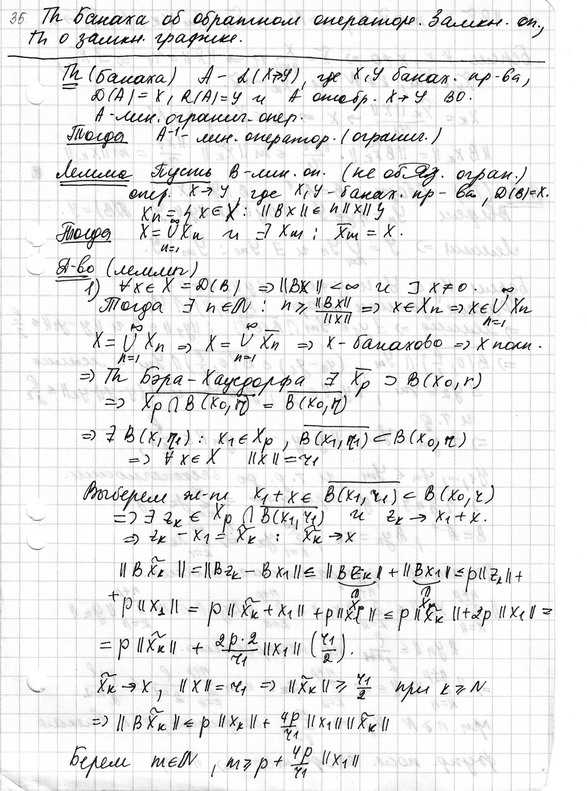 35 Th Банаха об обратном операторе. Замкн. оп.,
Th о замкн. графике.
Th (Банаха) A - L(X→Y), где X, Y банах. пр-ва,
D(A) = X, R(A) = Y и A отобр. X→Y ВО.
A - лин. огранич. опер.
Тогда A⁻¹ - лин. оператор. (огранич.)
Лемма Пусть B - лин. оп. (не обяз. огран.)
опер. X→Y, где X, Y - банах. пр-ва, D(B)=X.
Xn = {x ∈ X : ||Bx|| ≤ n||x||}
Тогда X = ∪_{n=1}^∞ Xn и ∃ Xm : \overline{Xm} = X.
Д-во (леммы)
1) ∀x ∈ X = D(B) ⇒ ||Bx|| < ∞ и ∃ x ≠ 0.
Тогда ∃ n ∈ N : n ≥ ||Bx||/||x|| ⇒ x ∈ Xn ⇒ x ∈ ∪_{n=1}^∞ Xn
X = ∪_{n=1}^∞ Xn ⇒ X = ∪_{n=1}^∞ \overline{Xn} ⇒ X - банахово ⇒ X полн.
⇒ Th Бэра-Хаусдорфа ∃ \overline{Xp} ⊃ B(x0, r)
⇒ \overline{Xp ∩ B(x0, r)} = \overline{B(x0, r)}
⇒ ∃ B(x1, r1) : x1 ∈ Xp, \overline{B(x1, r1)} ⊂ B(x0, r)
⇒ ∀x ∈ X ||x|| = r1
Выберем эл-т x1 + x ∈ \overline{B(x1, r1)} ⊂ B(x0, r)
⇒ ∃ zk ∈ Xp ∩ \overline{B(x1, r1)} и zk → x1 + x.
⇒ zk - x1 = x̃k : x̃k → x
||Bx̃k|| = ||Bzk - Bx1|| ≤ ||Bzk|| + ||Bx1|| ≤ p||zk|| +
+ p||x1|| = p||x̃k + x1|| + p||x1|| ≤ p||x̃k|| + 2p||x1|| =
= p||x̃k|| + 2p·2/r1 ||x1|| (r1/2).
x̃k → x, ||x|| = r1 ⇒ ||x̃k|| ≥ r1/2 при k ≥ N
⇒ ||Bx̃k|| ≤ p||xk|| + 4p/r1 ||x1|| ||x̃k||
Берем m ∈ N, m ≥ p + 4p/r1 ||x1||